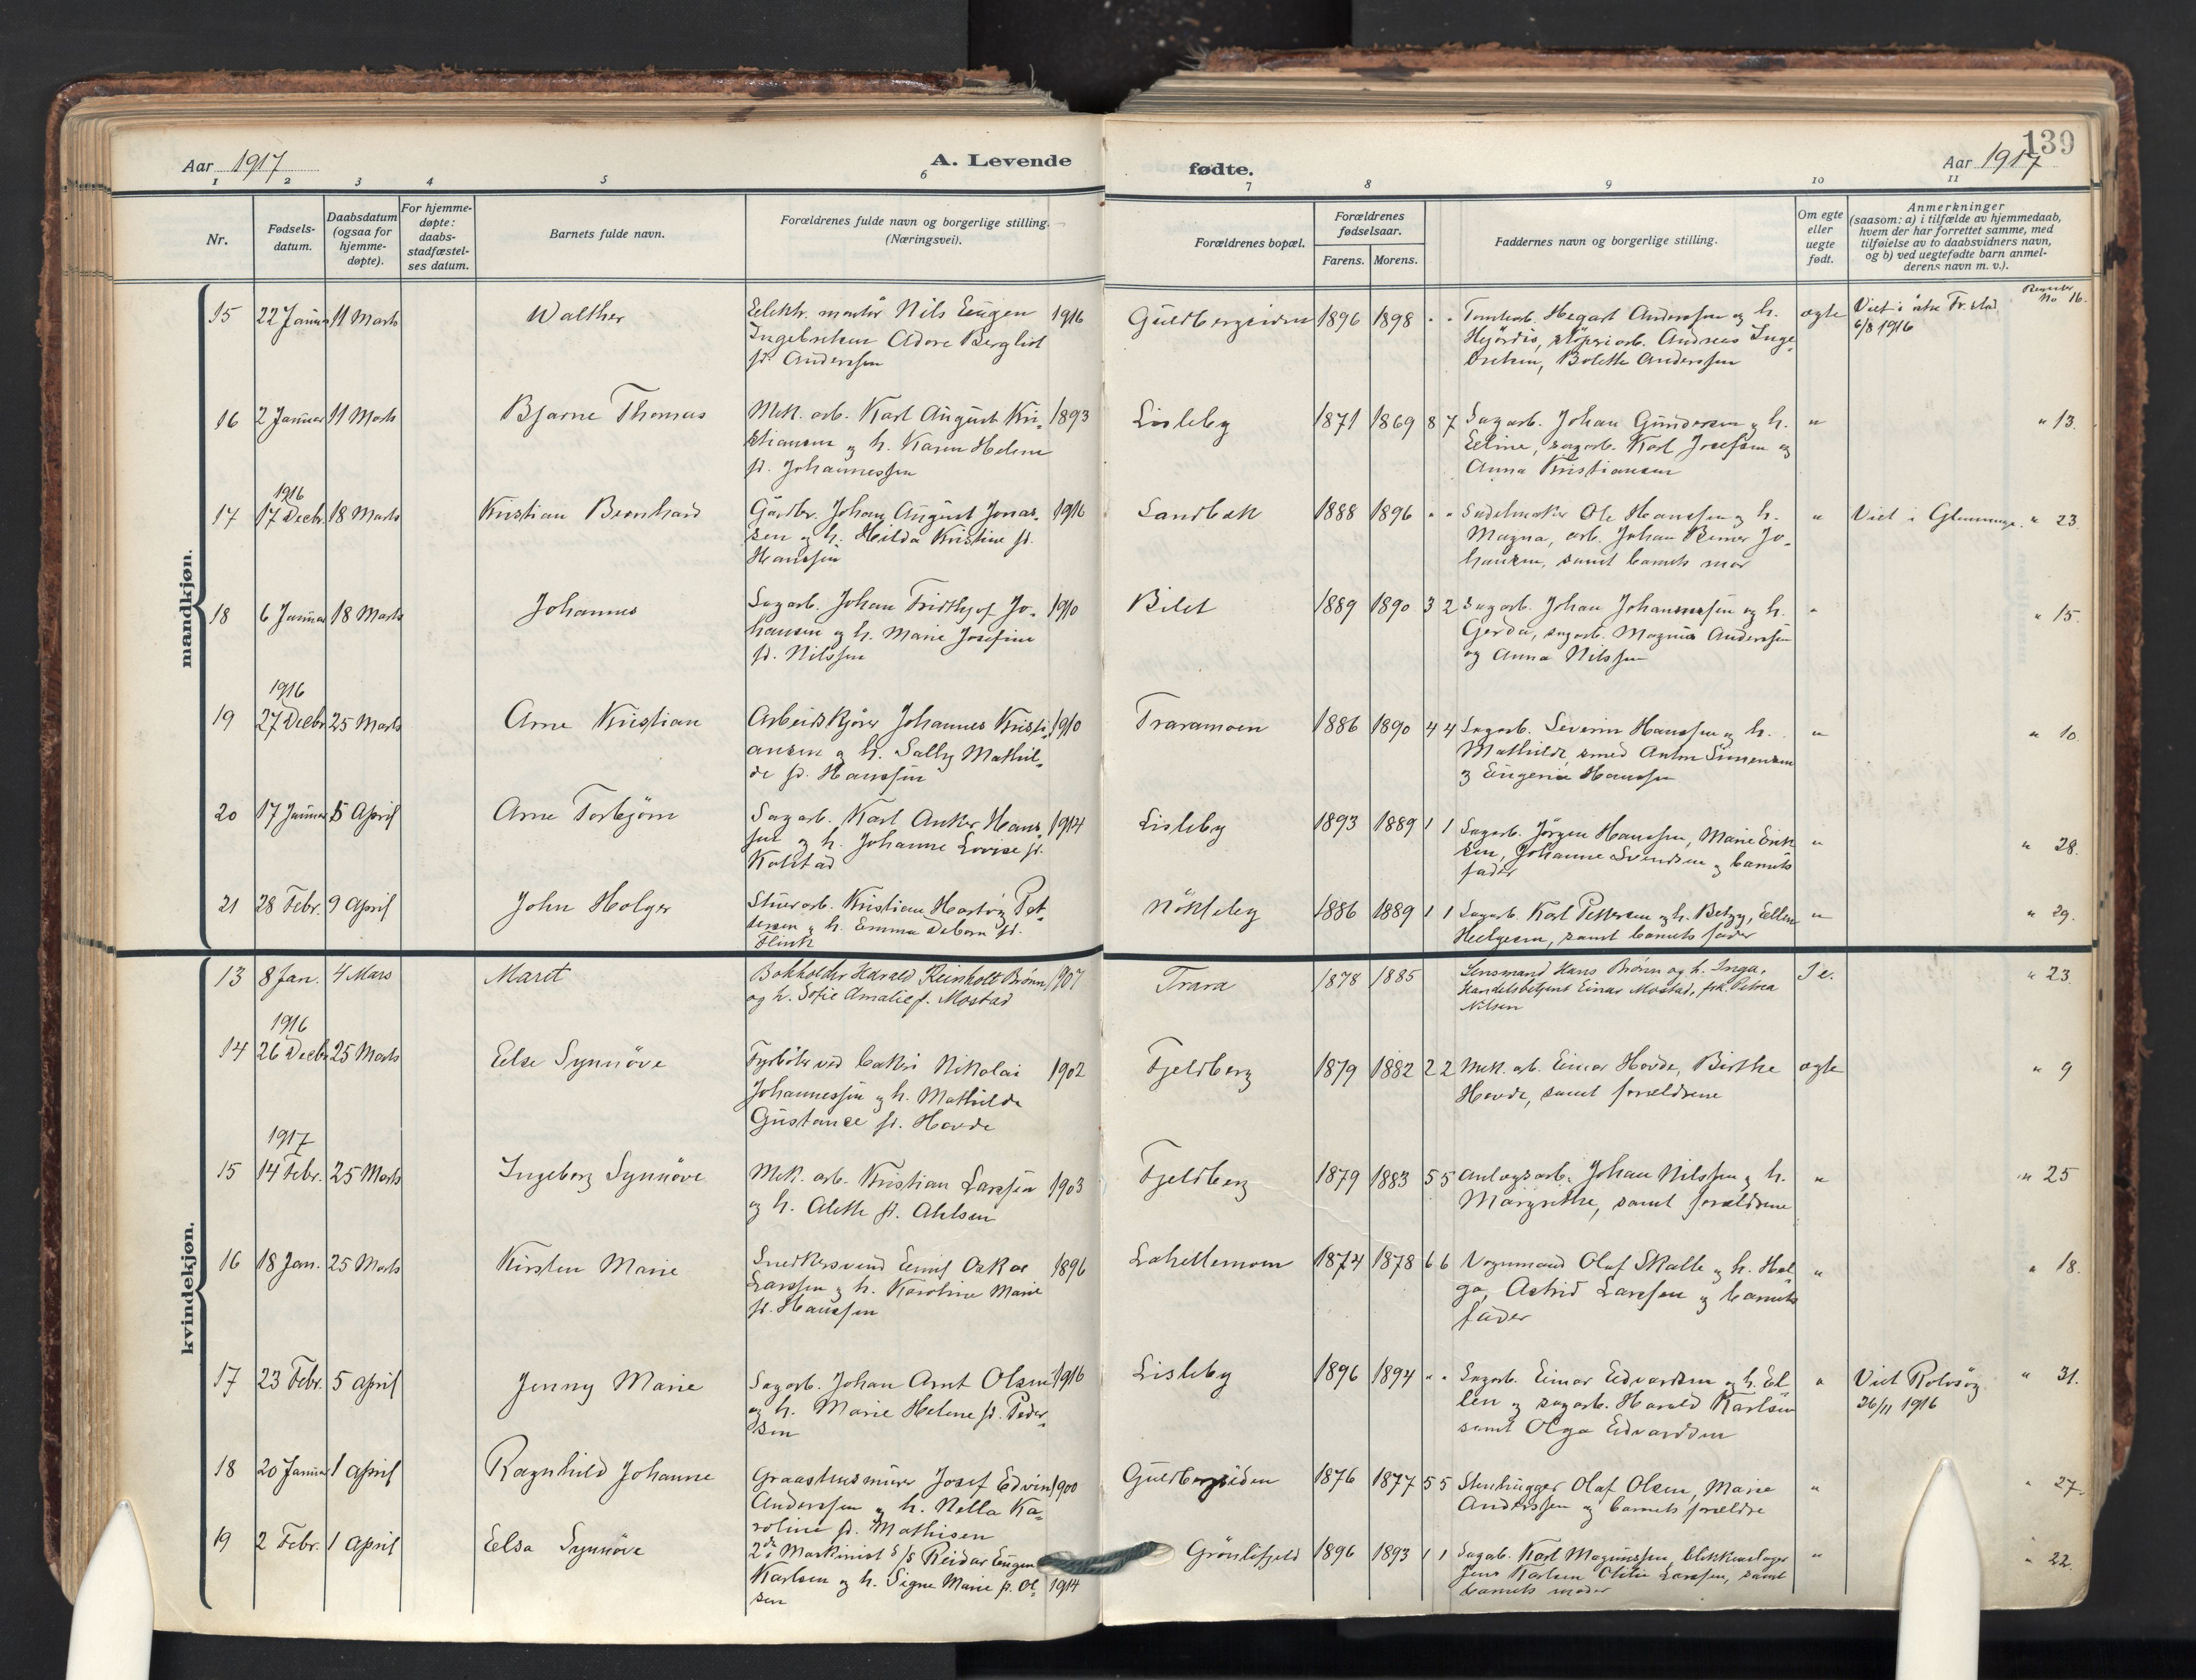 139
Aar 1917
A. Levende
fødte.
Aar 1917
1 2 3 4 5 6 7 8 9 10 11
Nr.
Fødsels-
datum.
Daabsdatum
(ogsaa for
hjemme-
døpte).
For hjemme-
døpte:
daabs-
stadfæstel-
ses datum.
Barnets fulde navn.
Forældrenes fulde navn og borgerlige stilling.
(Næringsvei).
Forældrenes bopæl.
Forældrenes
fødselsaar.
Farens. Morens.
Faddernes navn og borgerlige stilling.
Om egte
eller
uegte
født.
Anmerkninger
(saasom: a) i tilfælde av hjemmedaab,
hvem der har forrettet samme, med
tilføielse av to daabsvidners navn,
og b) ved uegtefødte barn anmel-
derens navn m. v.).
mandkjøn.
15 22 Januar 11 Marts Walther Elektr. montör Nils Eugen 1916
Ingebretsen Adore Bergliot
fd. Anderssen
Guldbergsiden 1896 1898 " " Tomtearb. Hegart Anderssen og h.
Hjördis, stöperiarb. Andreas Inge-
bretsen, Bolette Anderssen
ægte Viet i östre Fr.stad
6/8 1916
No 16.
16 2 Januar 11 Marts Bjarne Thomas Mek. arb. Karl August Kri- 1893
stiansen og h. Karen Helene
fd. Johannessen
Lisleby 1871 1869 8 7 Sagarb. Johan Gundersen og h.
Eline, sagarb. Karl Josefsen og
Anna Kristiansen
" " 13.
1916
17 17 Decbr. 18 Marts Kristian Bernhard Gårdbr. Johan August Jonas- 1916
sen og h. Hilda Kristine fd.
Hanssen
Sandbæk 1888 1896 " " Sadelmaker Ole Hanssen og h.
Magna, arb. Johan Reiner Jo-
hansen, samt barnets mor
" Viet i Glemminge. " 23.
18 6 Januar 18 Marts Johannes Sagarb. Johan Fridthjof Jo- 1910
hansen og h. Marie Josefine
fd. Nilssen
Bilet 1889 1890 3 2 Sagarb. Johan Johannessen og h.
Gerda, sagarb. Magnus Anderssen
og Anna Nilssen
" " 15.
1916
19 27 Decbr. 25 Marts Arne Kristian Arbeidskjører Johannes Kristi- 1910
ansen og h. Sally Mathil-
de fd. Hanssen
Traramoen 1886 1890 4 4 Sagarb. Severin Hanssen og h.
Mathilde, smed Anton Simensen
og Eugenie Hanssen
" " 10.
20 17 Januar 5 April Arne Torbjörn Sagarb. Karl Anker Hans- 1914
sen og h. Johanne Lovise fd.
Kolstad
Lisleby 1893 1889 1 1 Sagarb. Jörgen Hanssen, Marie Erik-
sen, Johanne Svendsen og barnets
fader
" " 28.
21 28 Febr. 9 April John Holger Stuerarb. Kristian Hartvig Pet-
tersen og h. Emma Debora fd.
Flink
Nökleby 1886 1889 1 1 Sagarb. Karl Pettersen og h. Betzy, Ellen
Helgesen, samt barnets fader
" " 29.
kvindekjøn.
13 8 Jan. 4 Mars Maret Bokholder Harald Reinholt Brønn 1907
og h. Sofie Amalie f. Mostad
Trara 1878 1885 Lensmand Hans Brønn og h. Inga,
Handelsbetjent Einar Mostad, frk. Petrea
Nilsen
I e. " 23.
1916
14 26 Decbr. 25 Marts Else Synnöve Fyrböter ved bakeri Nikolai 1902
Johannessen og h. Mathilde
Gustance fd. Hovde
Fjeldberg 1879 1882 2 2 Mek. arb. Einar Hovde, Birthe
Hovde, samt forældrene
ægte " 9
1917
15 14 Febr. 25 Marts Ingeborg Synnöve Mek. arb. Kristian Larssen 1903
og h. Alette fd. Ahlsen
Fjeldberg 1879 1883 5 5 Anlægsarb. Johan Nilssen og h.
Margrethe, samt forældrene
" " 25
16 18 Jan. 25 Marts Kirsten Marie Snedkersvend Ernst Oskar 1896
Larssen og h. Karoline Marie
fd. Hanssen
Lahellemoen 1874 1878 6 6 Vognmand Olaf Skalle og h. Hel-
ga, Astrid Larssen og barnets
fader
" " 18.
17 23 Febr. 5 April Jenny Marie Sagarb. Johan Arnt Olsen 1916
og h. Marie Helene fd. Peder-
sen
Lisleby 1896 1894 " " Sagarb. Einar Edvardsen og h. El-
len og sagarb. Harald Karlsen
samt Olga Edvardsen
" Viet Rolvsøy
26/11 1916
" 31.
18 20 Januar 1 April Ragnhild Johanne Graastensmurer Josef Edvin 1900
Anderssen og h. Nilla Ka-
roline fd. Mathisen
Guldbergsiden 1876 1877 5 5 Stenhugger Olaf Olsen, Marie
Anderssen og barnets forældre
" " 27.
19 2 Febr. 1 April Elsa Synnöve 2de Maskinist s/s Reidar Eugen
Karlsen og h. Signe Marie f. Ol- 1914
sen
Grönlifjeld 1896 1893 1 1 Sagarb. Karl Magnussen, blikkenslager
Jens Karlsen Otilie Larssen, samt
barnets moder
" " 22.